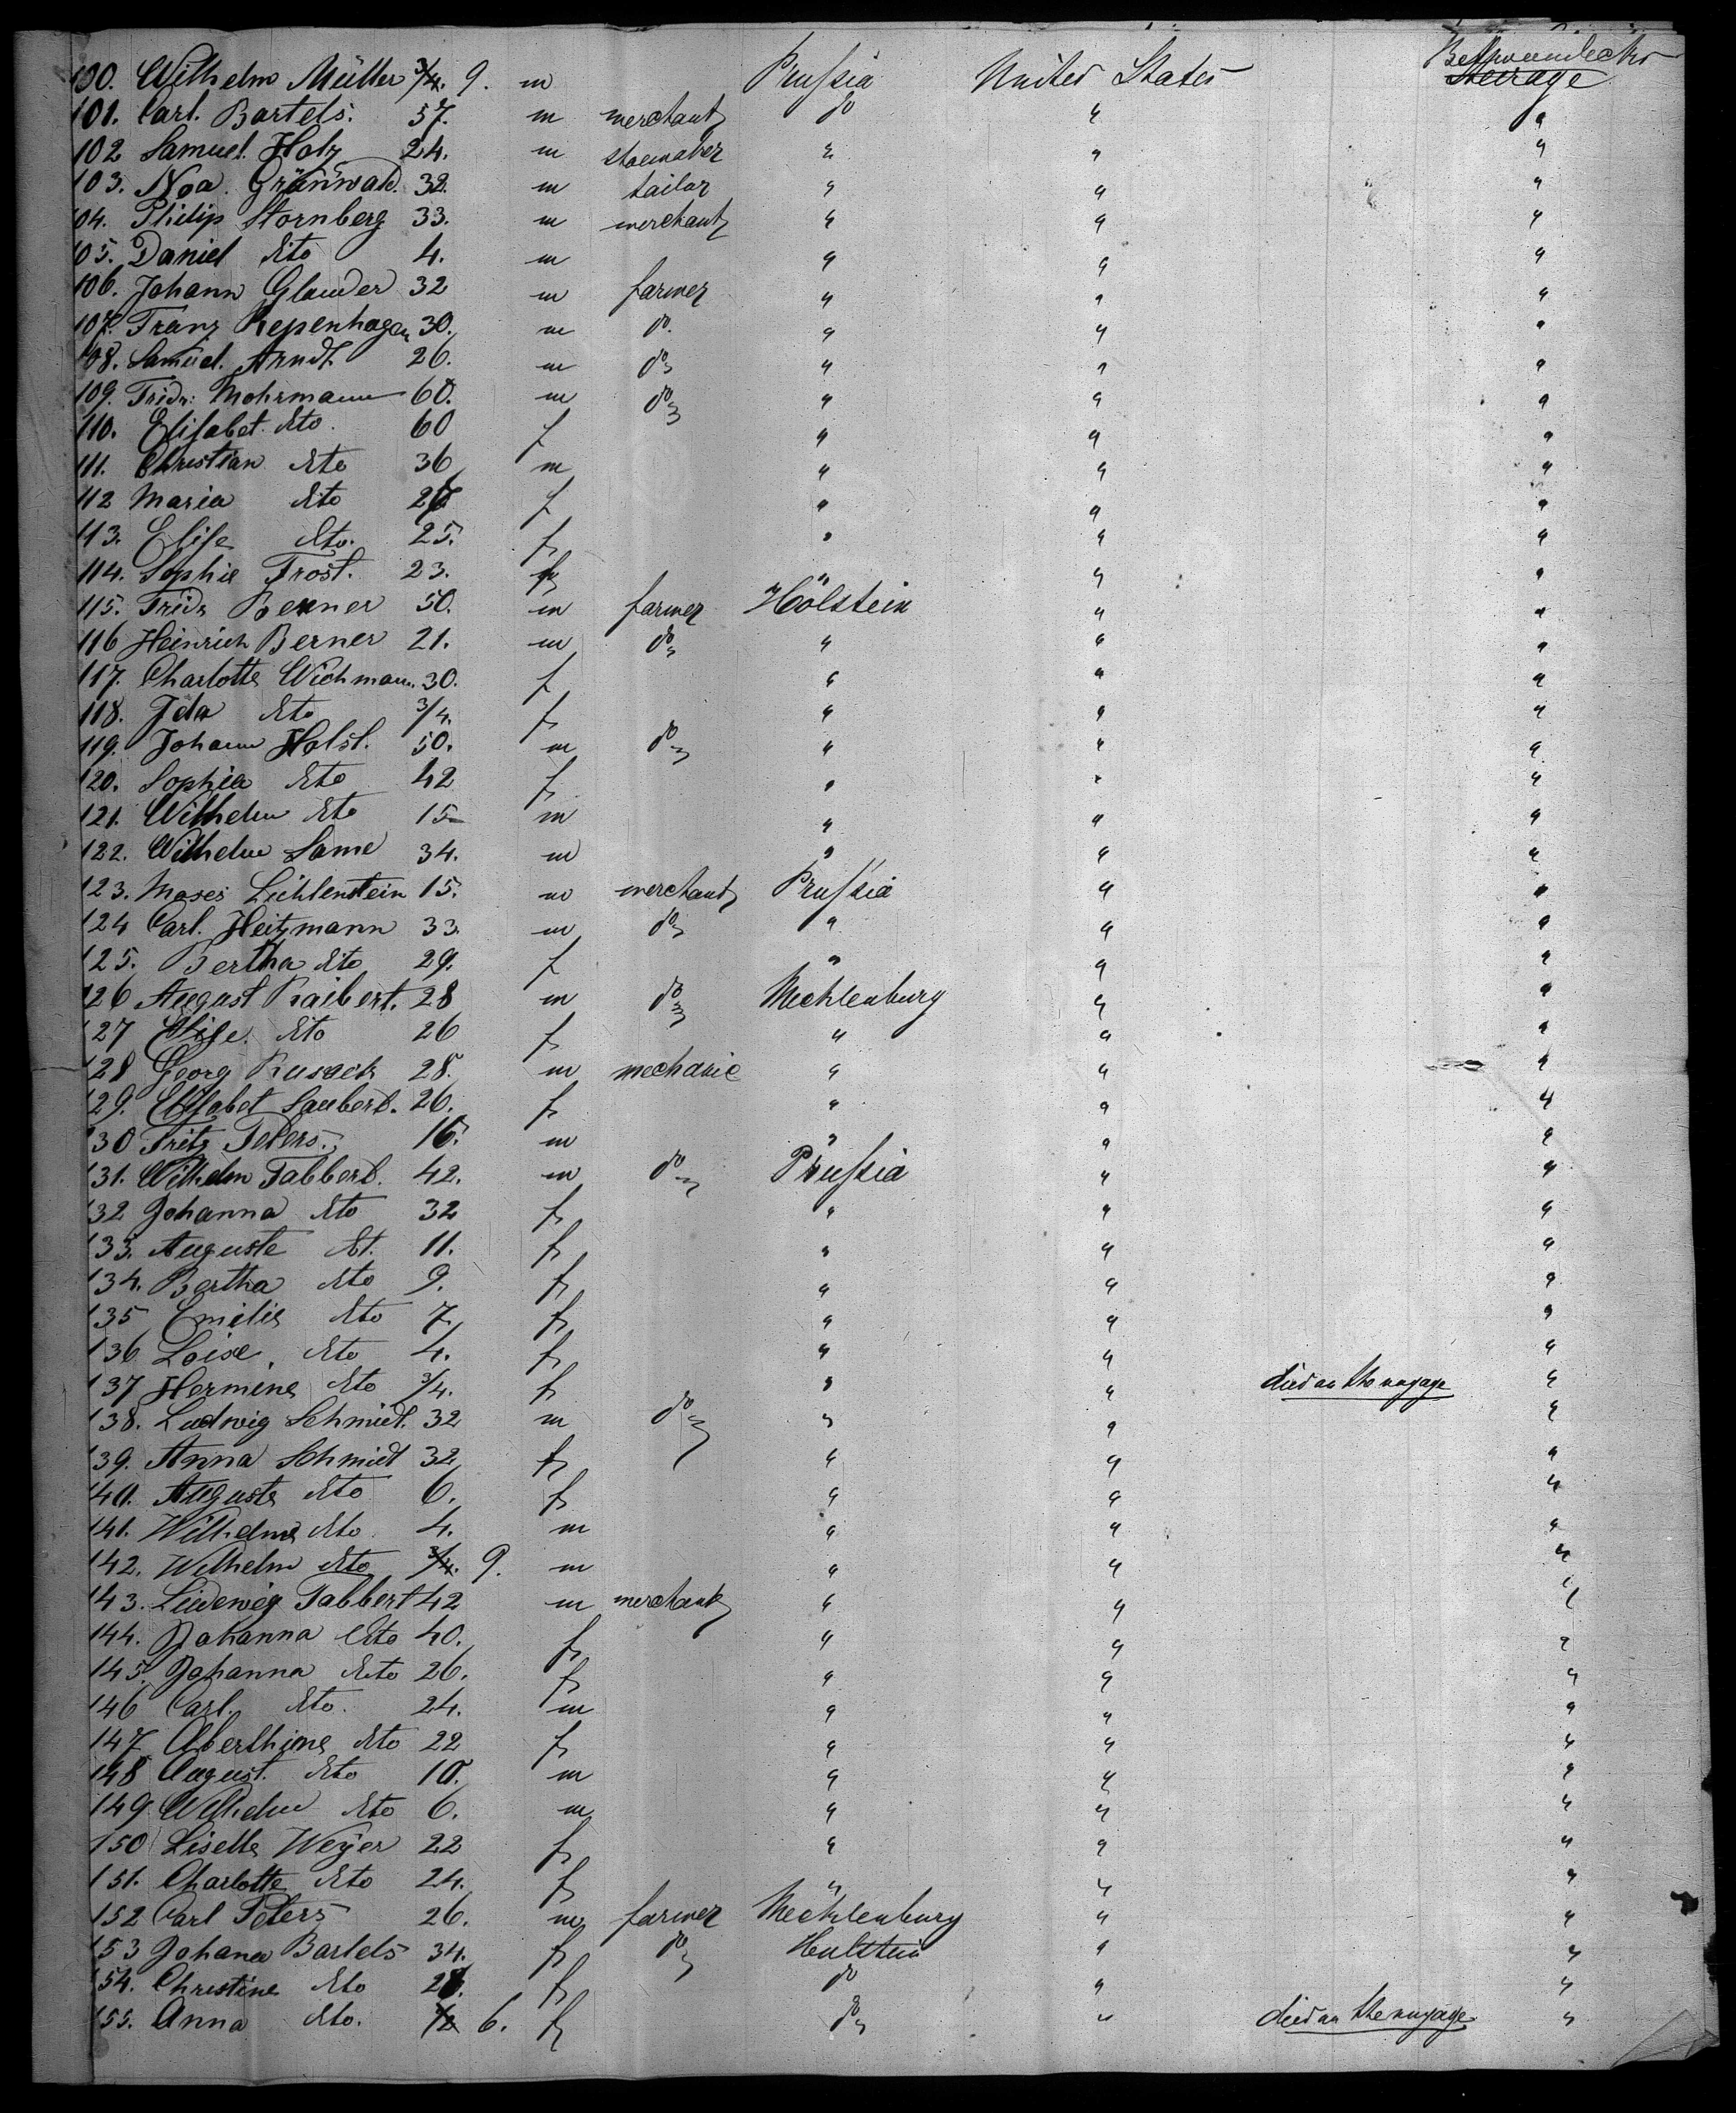 100. Wilhelm Müller 3/4. 9. m Prussia United States Betweendecks Steerage
101. Carl. Bartels. 37. m merchant do " "
102 Samuel. Holz 24. m shoemaker " " "
103. Noa. Grünwald. 32. m tailor " " "
104. Philip Stornberg 33. m merchant " " "
105. Daniel dto 4. m " " "
106. Johann Glander 32 m farmer " " "
107. Franz Repenhagen 30. m do. " " "
108. Samuel. Arndt. 26. m do " " "
109. Fridr: Mohrmann 60. m do " " "
110. Elisabet. dto. 60 f " " "
111. Christian dto 36 m " " "
112 Maria dto f " " "
113. Elise dto. 25. f " " "
114. Sophie Frost. 23. f " " "
115. Fridr Berner 50. m farmer Holstein " "
116 Heinrich Berner 21. m do " " "
117. Charlotte Wichmann. 30. f " " "
118. Ida dto 3/4. f " " "
119. Johann Holst. 50. m do " " "
120. Sophia dto 42 f " " "
121. Wilhelm dto 15 m " " "
122. Wilhelm Same 34. m " " "
123. Moses Lichtenstein 15. m merchant Prussia " "
124 Carl. Heitzmann 33. m do " " "
125. Bertha dto 29. f " " "
126 August Raibert. 28 m do Mecklenburg " "
127 Elise. dto 26 f " " "
128 Georg Rusack 28. m mechanic " " "
129. Elisabet Saubert. 26. f " " "
130 Fritz Peters. 16. m " " "
131. Wilhelm Tabbert. 42. m do Prussia " "
132 Johanna dto 32 f " " "
133. Auguste dt. 11. f " " "
134. Bertha dto 9. f " " "
135 Emilie dto 7. f " " "
136 Loise. dto 4. f " " "
137 Hermine dto 3/4. f " " died on the voyage "
138. Ludwig Schmidt. 32 m do " " "
139. Anna Schmidt 32 f " " "
140. Auguste dto 6. f " " "
141. Wilhelm dto. 4. m " " "
142. Wilhelm dto 3/4. 9. m " " "
143. Ludewig Tabbert 42 m merchant " " "
144. Johanna dto 40. f " " "
145. Johanna dto 26. f " " "
146 Carl. dto. 24. m " " "
147 Aberthine dto 22 f " " "
148 August. dto 10. m " " "
149. Wilhelm dto 6. m " " "
150 Lisette Weyer 22 f " " "
151. Charlotte dto 24. f " " "
152 Carl Peters 26. m farmer Mecklenburg " "
153 Johana Bartels 34. f do Holstein " "
154. Christine dto f do " "
155. Anna dto. 1/2 6. f do " died on the voyage "